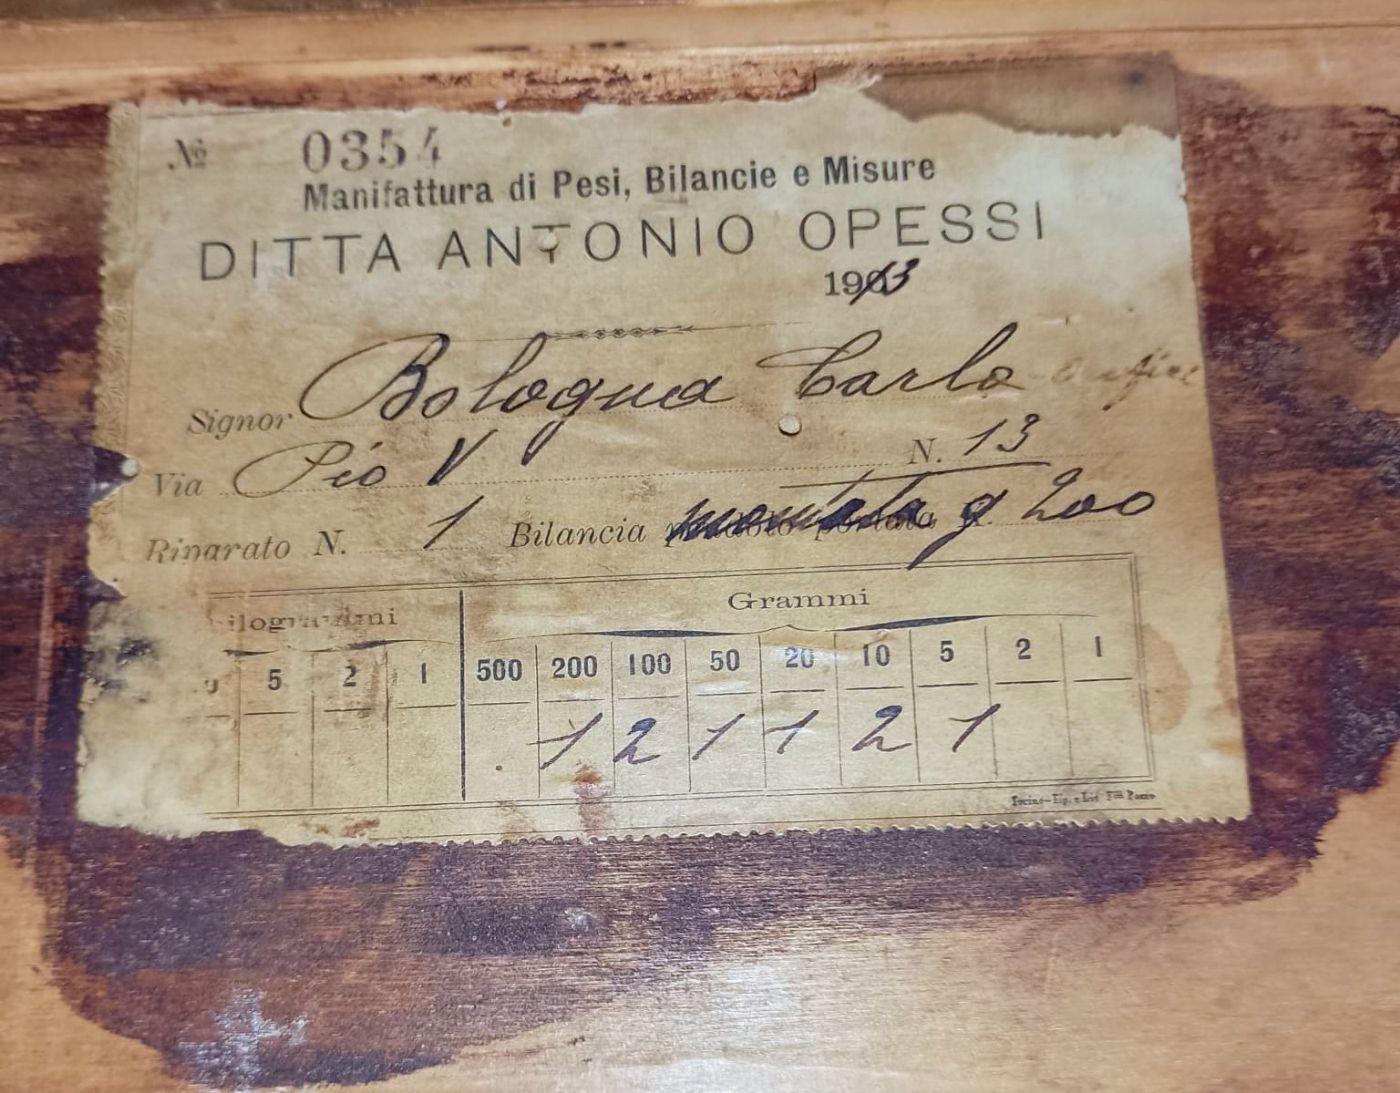 No 0354
Manifattura di Pesi, Bilancie e Misure
DITTA ANTONIO OPESSI
1913
Signor Bologna Carlo
Via Pio V N. 13
Riparato N. 1 Bilancia montata g 200
ilogrammi Grammi
5 2 1 500 200 100 50 20 10 5 2 1
1 2 1 1 2 1
Torino-Tip. e Lit. Flli Pozzo